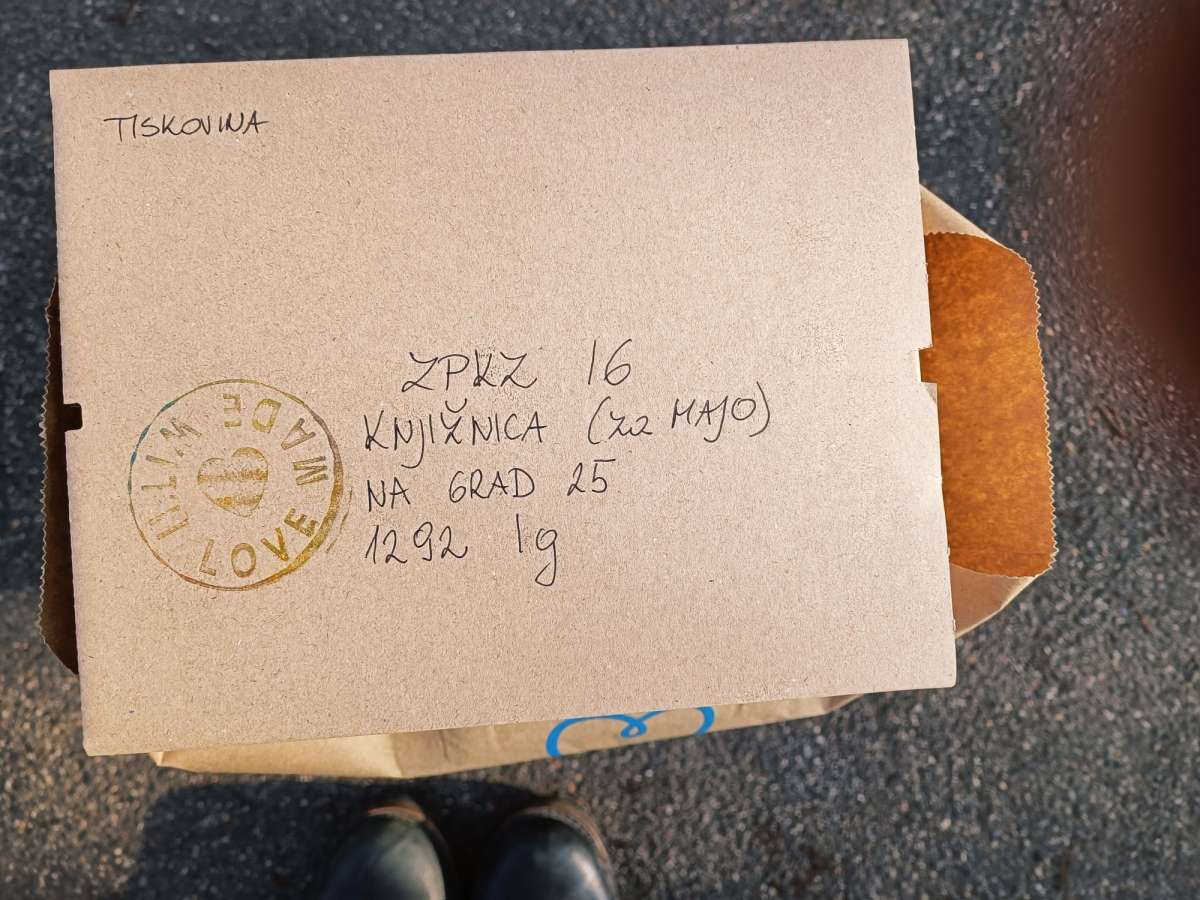 TISKOVINA
ZPKZ 16
KNJIŽNICA (za MAJO)
NA GRAD 25
1292 Ig
MADE WITH LOVE